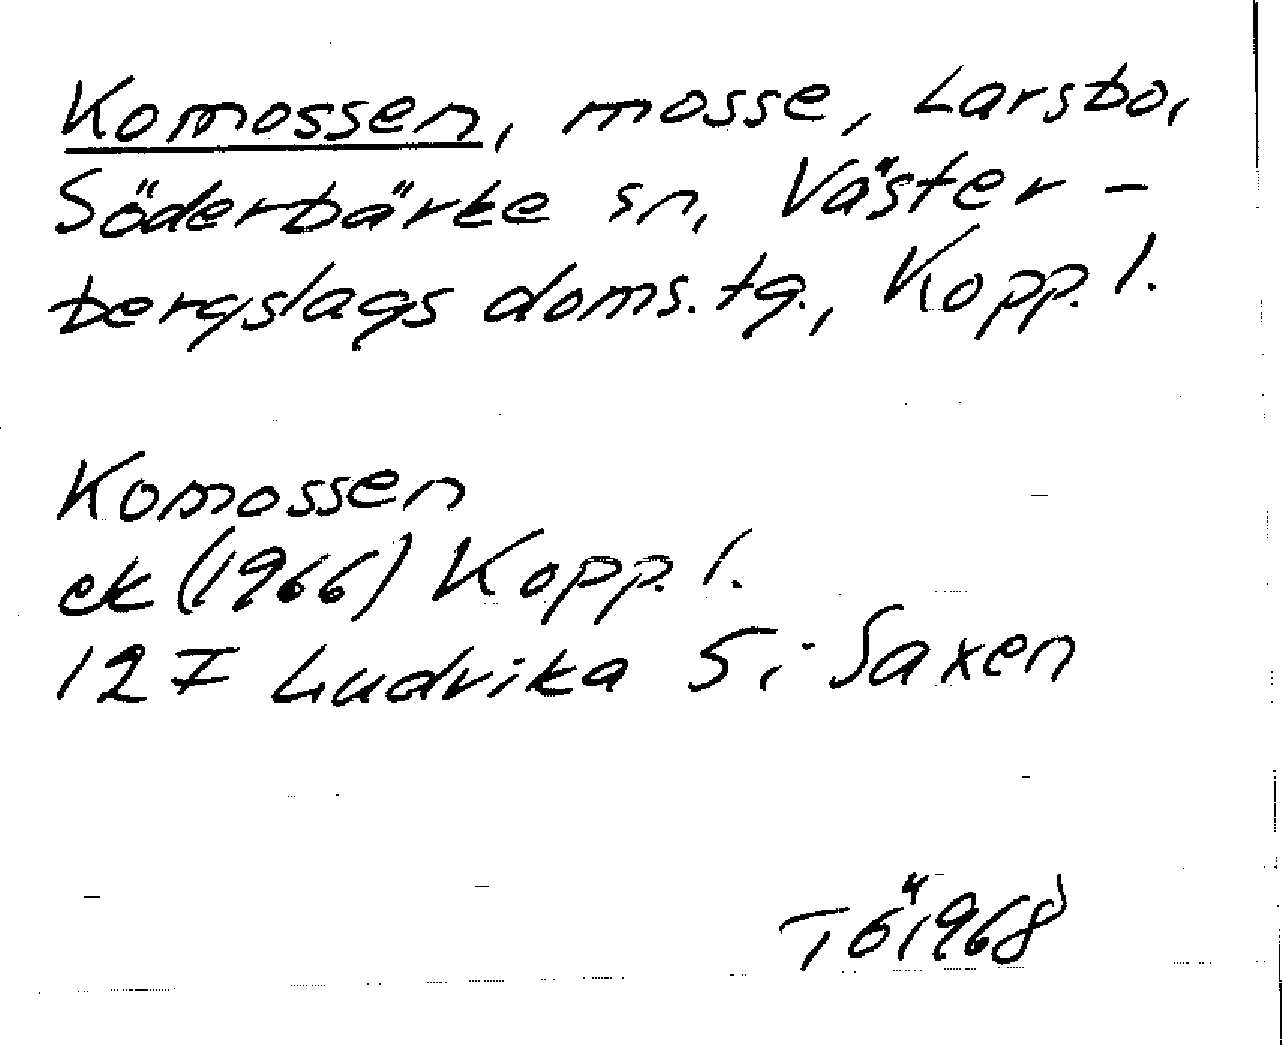 Komossen, mosse, Larsbo,
Söderbärke sn, Väster-
bergslags doms.tg., Kopp. l.
Komossen
ek (1966) Kopp. l.
12 F Ludvika S; Saxen
TÖ 1968